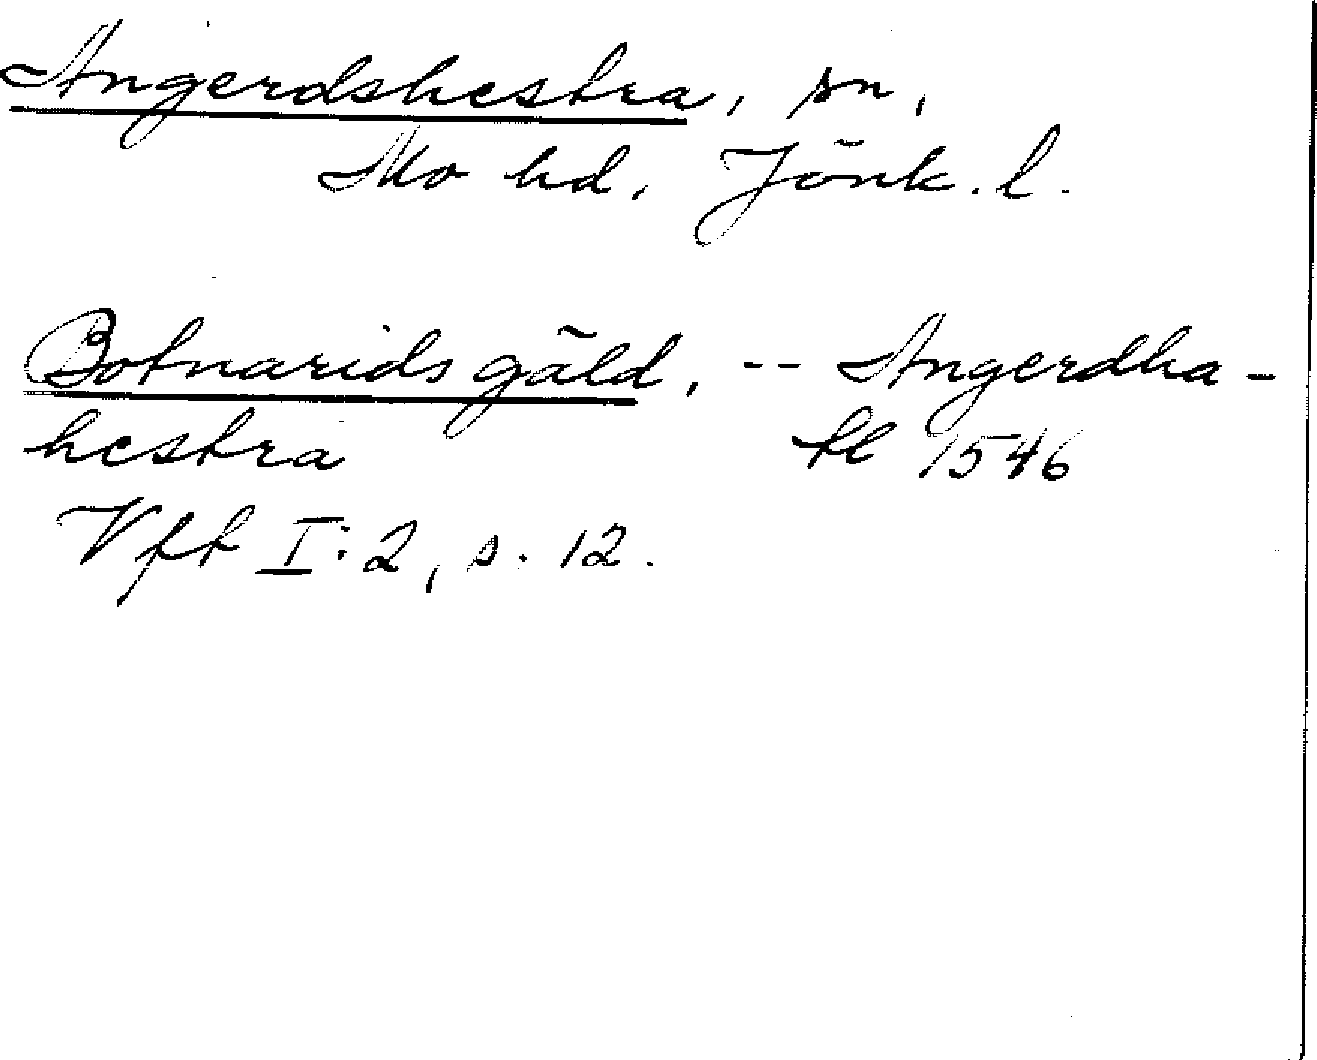 Angerdshestra, sn,
Mo hd, Jönk. l.
Botnarids gäld, -- Angerdha-
hestra fl 1546
Vft I:2, s. 12.